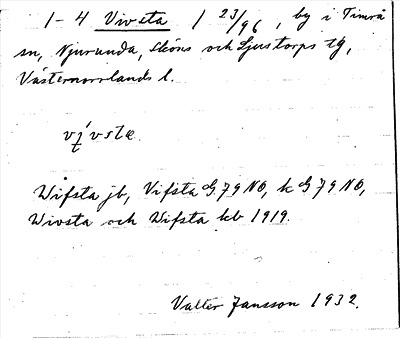 1-4 Vivsta 1 23/96, by i Timrå
sn, Njurunda, Sköns och Ljustorps tg,
Västernorrlands l.
Wifsta jb, Vifsta G 79 NO, k G 79 NO,
Wivsta och Wifsta kb 1919.
Valter Jansson 1932.